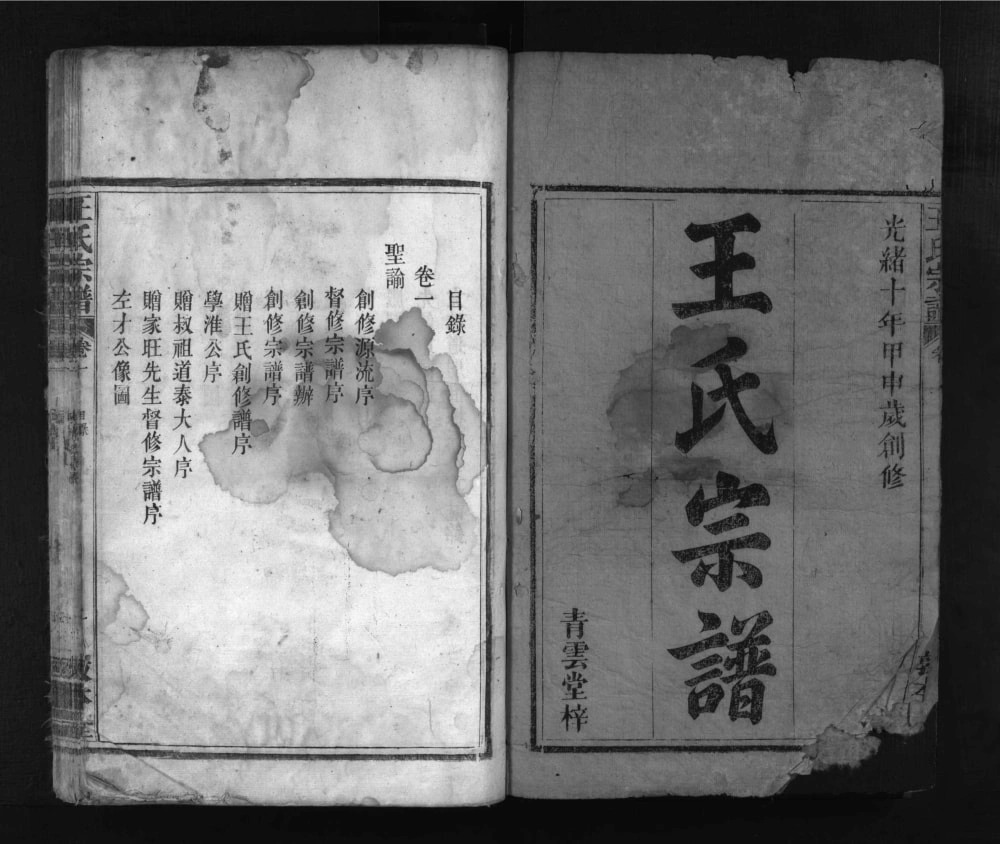 光緒十年甲申歲創修
王氏宗譜
青雲堂梓
目錄
卷一
聖諭
創修源流序
督修宗譜序
創修宗譜辦
創修宗譜序
贈王氏創修譜序
學淮公序
贈叔祖道泰大人序
贈家旺先生督修宗譜序
左才公像圖
王氏宗譜
卷一